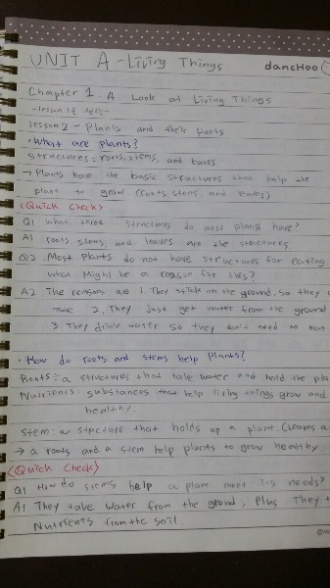 UNIT A - Living Things
dancHoo
Chapter 1 A Look at Living Things
Lesson 2 - Plants and their Parts
• What are plants?
Structures: roots, stems, and leaves
→ Plants have the basic structures that help the
plant to grow (roots, stems, and leaves)
<Quick Check>
Q1 What three structures do most plants have?
A1 roots, stems, and leaves are the structures
Q2 Most plants do not have structures for eating
What might be a reason for this?
A2 The reasons are 1. They stick on the ground, so they
2. They just get water from the ground
3 They drink water so they don't need to eat
• How do roots and stems help Plants?
Roots: a structures that take water and hold the
Nutrients: substances that help living things grow and
healthy.
Stem: a structure that holds up a plant
→ a roots and a stem help plants to grow healthy
<Quick Check>
Q1 How do stems help a plant meet its needs?
A1 They take water from the ground, Plus They
Nutrients from the soil.